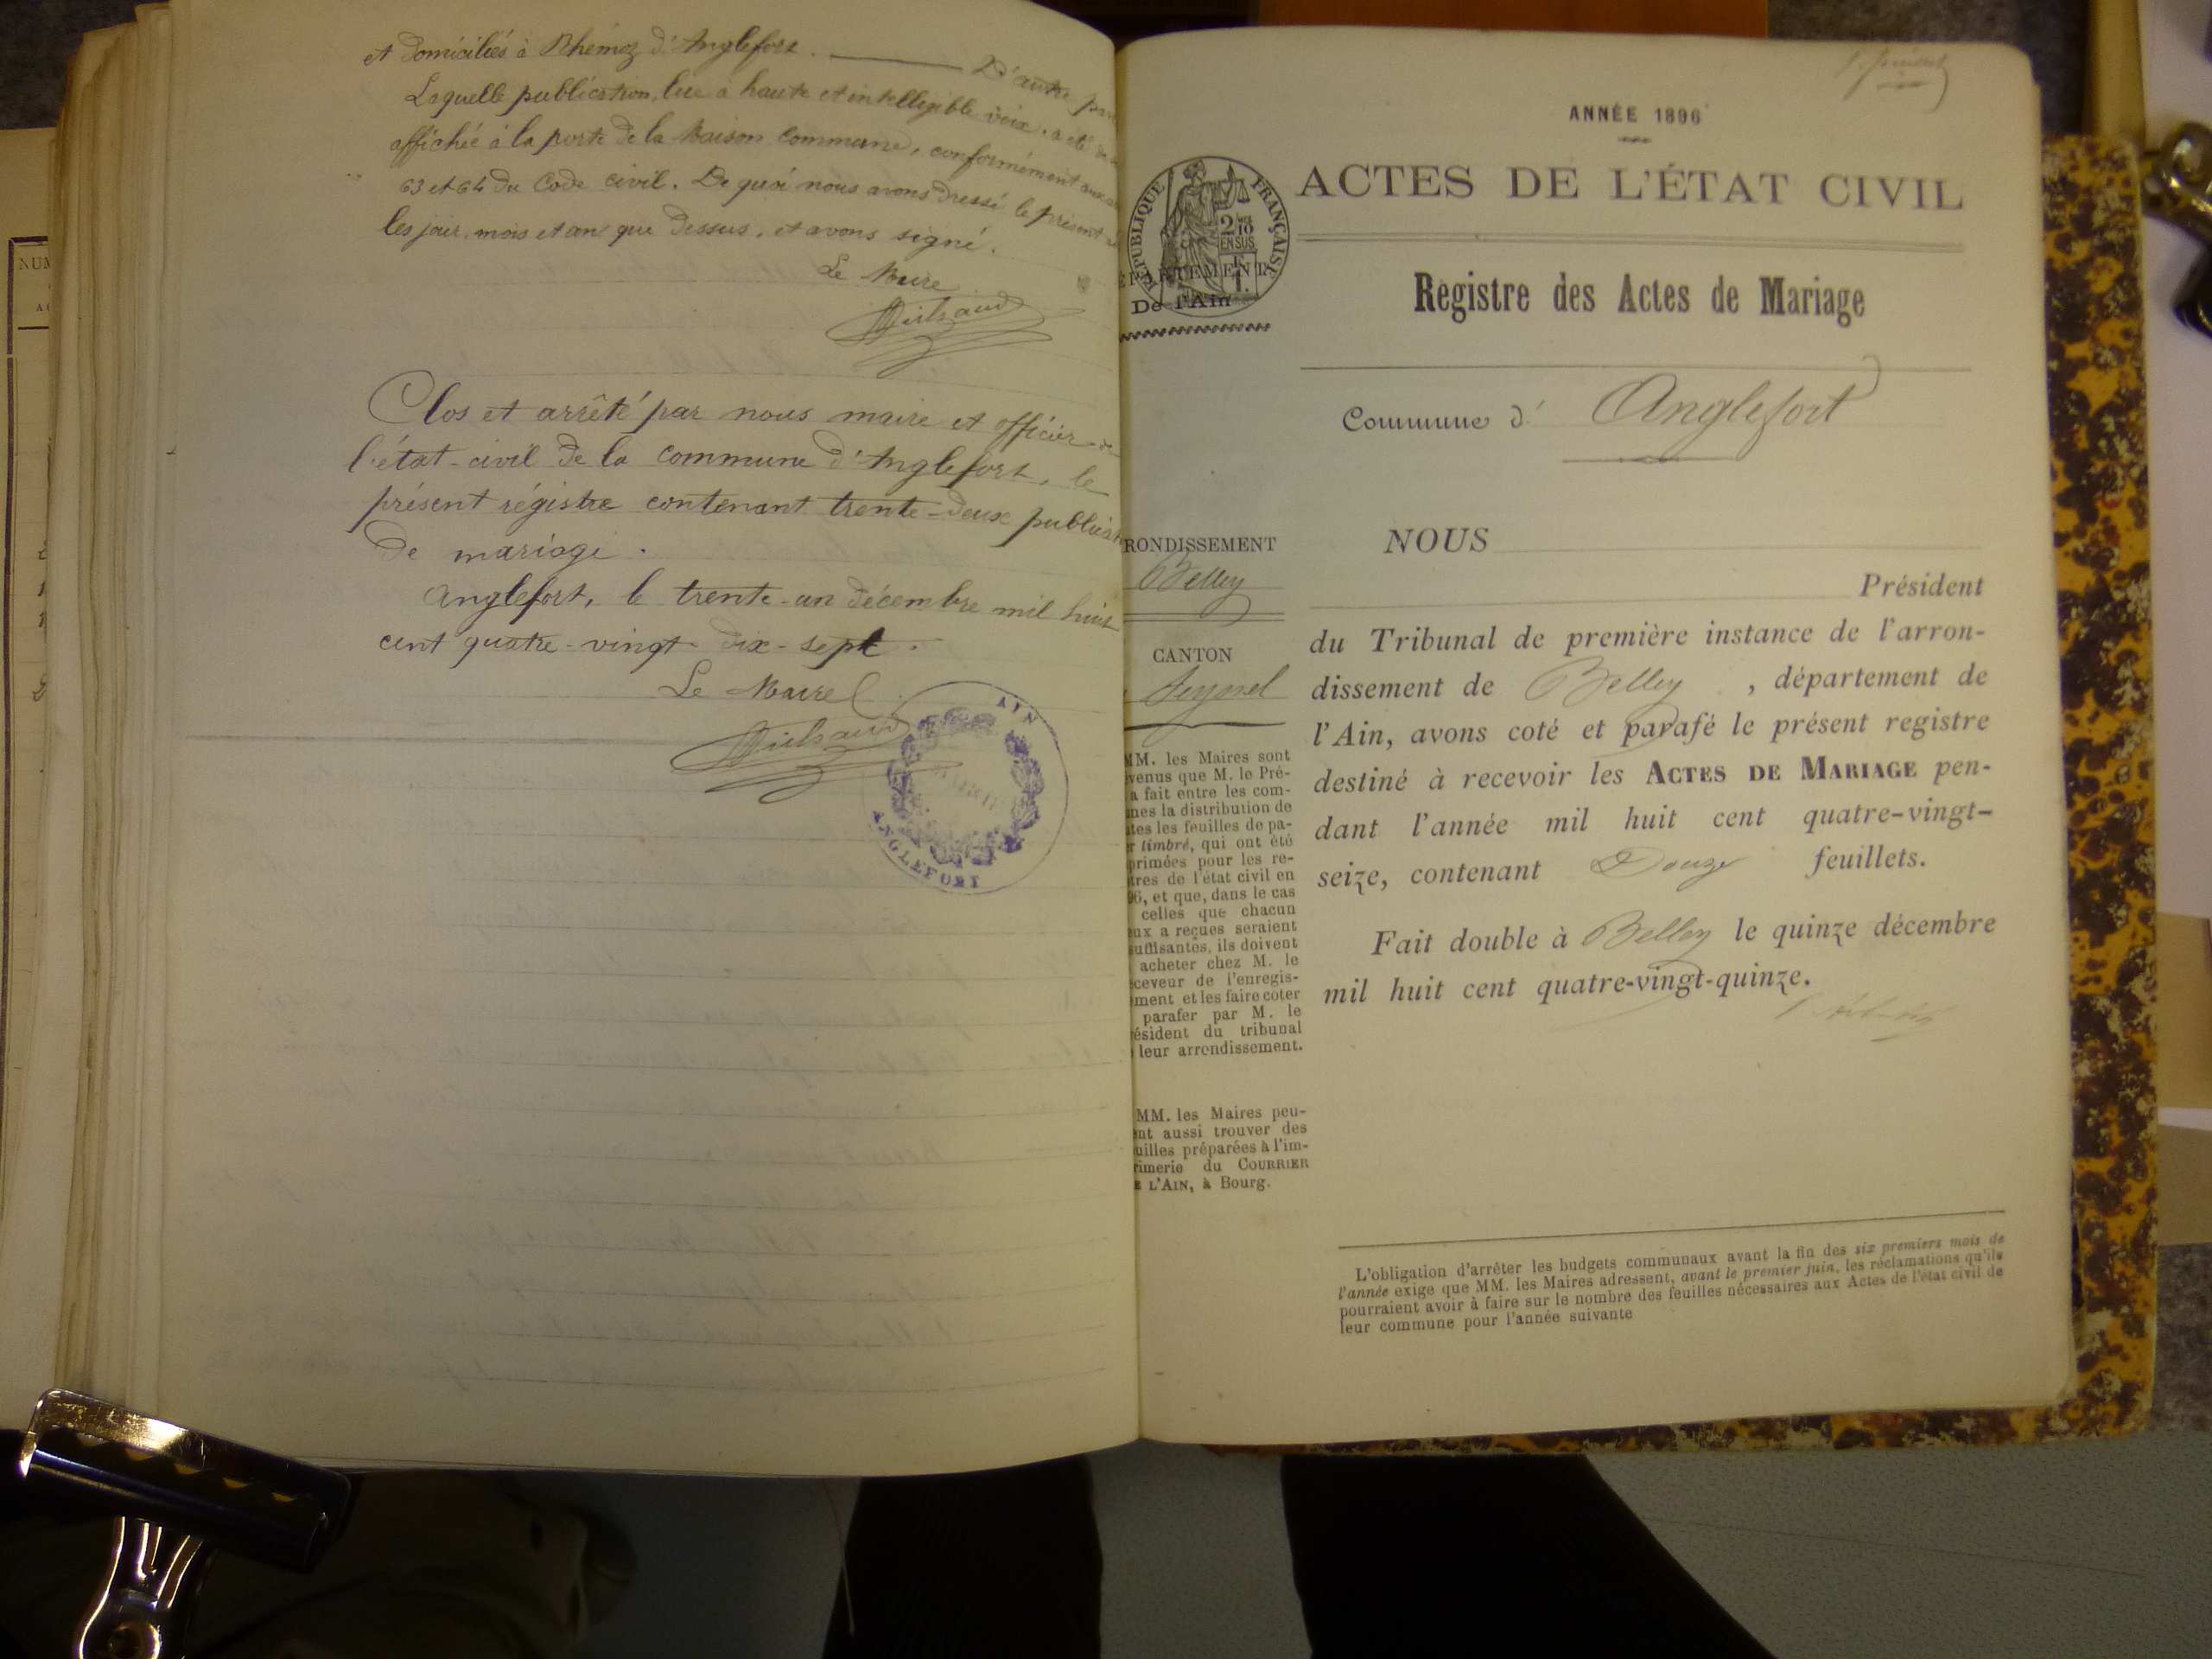 et domiciliés à Rhémoz d'Anglefort. D'autre
Laquelle publication, lue à haute et intelligible voix, a été
affichée à la porte de la Maison Commune, conformément aux
63 et 64 du Code civil. De quoi nous avons dressé le présent
les jour, mois et an que dessus, et avons signé.
Le Maire
Clos et arrêté par nous maire et officier de
l'état-civil de la commune d'Anglefort, le
présent régistre contenant trente-deux
de mariage.
Anglefort, le trente-un décembre mil huit
cent quatre-vingt-dix-sept.
Le Maire
AIN
MAIRIE
ANGLEFORT
NUM
ANNÉE 1896
RÉPUBLIQUE FRANÇAISE
2/10
EN SUS
ACTES DE L'ÉTAT CIVIL
ÉPARTEMENT
De l'Ain
Registre des Actes de Mariage
Commune d' Anglefort
RONDISSEMENT
Belley
CANTON
Seyssel
MM. les Maires sont
venus que M. le Pré-
a fait entre les com-
nes la distribution de
tes les feuilles de pa-
r timbré, qui ont été
primées pour les re-
tres de l'état civil en
96, et que, dans le cas
celles que chacun
eux a reçues seraient
suffisantes, ils doivent
acheter chez M. le
ceveur de l'enregis-
ment et les faire coter
parafer par M. le
ésident du tribunal
leur arrondissement.
MM. les Maires peu-
ent aussi trouver des
uilles préparées à l'im-
rimerie du COURRIER
E L'AIN, à Bourg.
NOUS
Président
du Tribunal de première instance de l'arron-
dissement de Belley, département de
l'Ain, avons coté et parafé le présent registre
destiné à recevoir les ACTES DE MARIAGE pen-
dant l'année mil huit cent quatre-vingt-
seize, contenant Douze feuillets.
Fait double à Belley le quinze décembre
mil huit cent quatre-vingt-quinze.
L'obligation d'arrêter les budgets communaux avant la fin des six premiers mois de
l'année exige que MM. les Maires adressent, avant le premier juin, les réclamations qu'ils
pourraient avoir à faire sur le nombre des feuilles nécessaires aux Actes de l'état civil de
leur commune pour l'année suivante